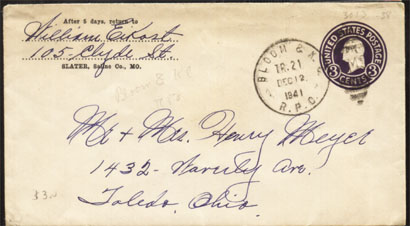 After 5 days, return to
William Eckort
105 Clyde St.
SLATER, Saline Co., MO.
BLOOM & K.C.
TR. 21
DEC 12
1941
R.P.O.
UNITED STATES POSTAGE
3 CENTS 3
Bloom & KC
Mr + Mrs. Henry Meyer
1432 - Waverly Ave.
Toledo, Ohio.